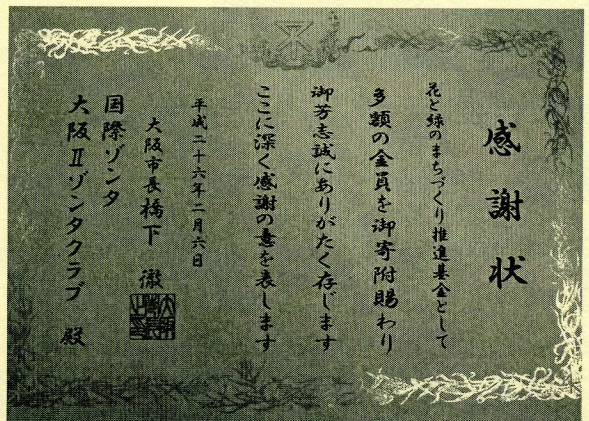 感謝状
花と緑のまちづくり推進基金として
多額の金員を御寄附賜わり
御芳志誠にありがたく存じます
ここに深く感謝の意を表します
平成二十六年二月六日
大阪市長 橋下 徹
国際ゾンタ
大阪Ⅱゾンタクラブ 殿